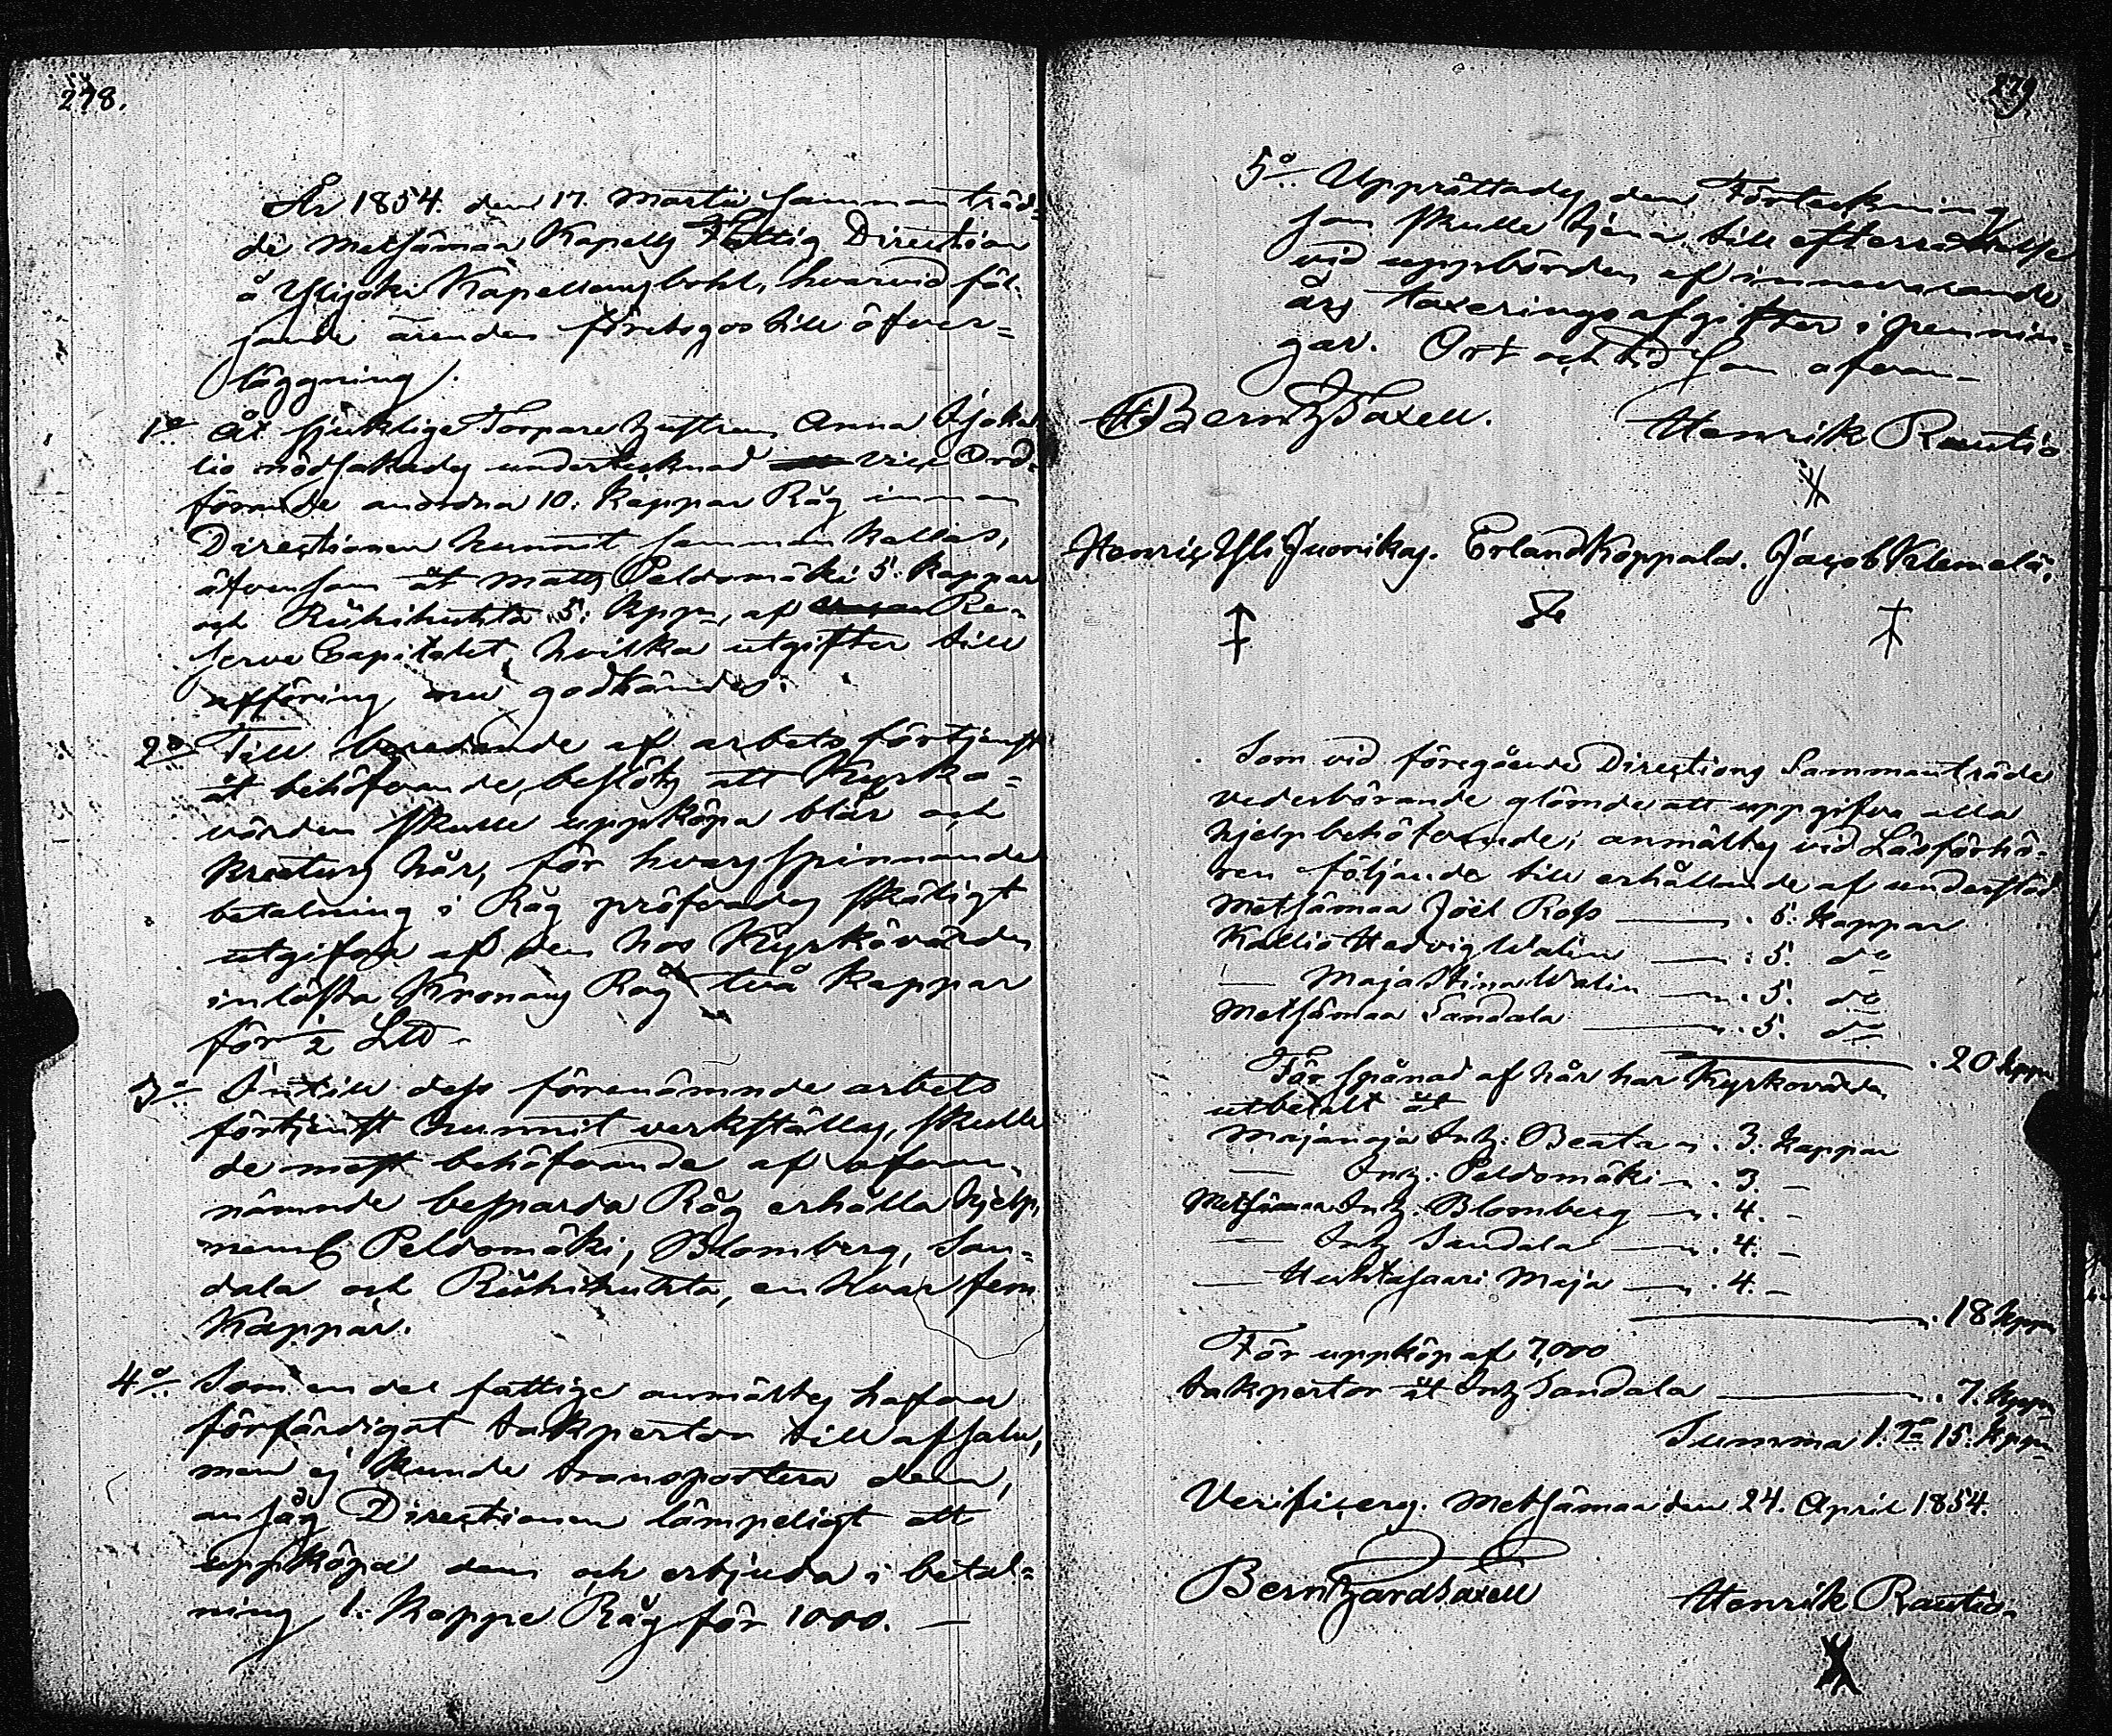 278.
År 1854. den 17. Martii samman träd=
de Metsämaa Kapells Fattig Direction
å Ylijoki Kapellansbohl, hvarvid föl-
jande ärenden företogos till öfver=
läggning.
1o At sjuklige Torpare hustrun Anna
lio nödsakades undertecknad vice Ord-
förande anordna 10. kappar Råg innan
Directionen hunnit samman kallas,
äfvensom åt Matts Peldomäki 5. kappar
och Riihihuhta 5. kppr, af Re-
serve Capitalet, hvilka utgifter till
afföring nu godkändes.
2o Till beredande af arbets förtjenst
åt behöfvande, beslöts att Kyrko=
värden skulle uppköpa blår och
kreaturs hår, för hvars spinnande
betalning i Råg pröfvades skäligt
utgifva af den hos Kyrkovärden
inlösta Kronans Råg två kappar
för 1/2 L℔.
3o Intill dess förenämnde arbets
förtjenst hunnit verkställas, skulle
de mest behöfvande af ofvan-
nämnde besparda Råg erhålla hjelp,
neml. Peldomäki, Blomberg, San=
dala och Riihihuhta, en hvar fem
Kappar.
4o Som en del fattige anmältes hafva
förfärdigat takpertor till afsalu,
men ej kunde transportera dem,
ansåg Directionen lämpeligt att
uppköpa dem och erbjuda i betal=
ning 1. Kappe Råg för 1000. —
279.
5o Upprättades den Förteckning
som skulle tjena till efterrättelse
vid uppbörden af innevarande
års taxeringsafgifter i pennin=
gar. Ort och tid som ofvan—
Bernh Saxell. Henrik Rautio
Henric Yli Juonikas. Erland Koppala. Jacob Klemelä.
Som vid föregående Directions Sammanträde
vederbörande glömde att uppgifva alla
hjelpbehöfvande; anmältes vid Läsförhö-
ren följande till erhållande af understöd
Metsämaa Joël Ross — . 5. kappar
Kallio Hedvig Walin — . 5. do
— Maja Stina Walin — . 5. do
Metsämaa Sandala — . 5. do
. 20 kppr
För spånad af hår har Kyrkovärden
utbetalt åt
Majanoja Inh: Beata — . 3. kappar
— Inh: Peldomäki — . 3. —
Metsämaa Inh: Blomberg — . 4. —
— Inh Sandala — . 4. —
— Huhtasaari Maja — . 4. —
. 18 kppr
För uppköp af 7,000
takpertor åt Inh Sandala — . 7. kppr
Summa 1. Ta 15. kppr
Verificeras. Metsämaa den 24. April 1854.
Bernhard Saxell Henrik Rautio.